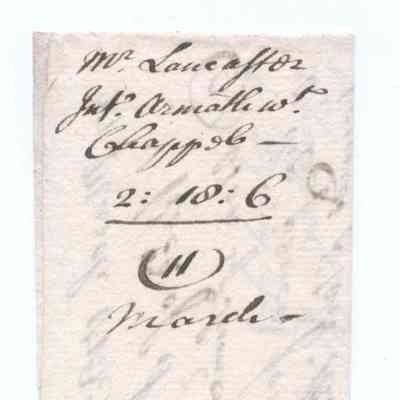 Mr. Lancaster
Int. Armathwt.
Chappel —
2: 18: 6
11
March